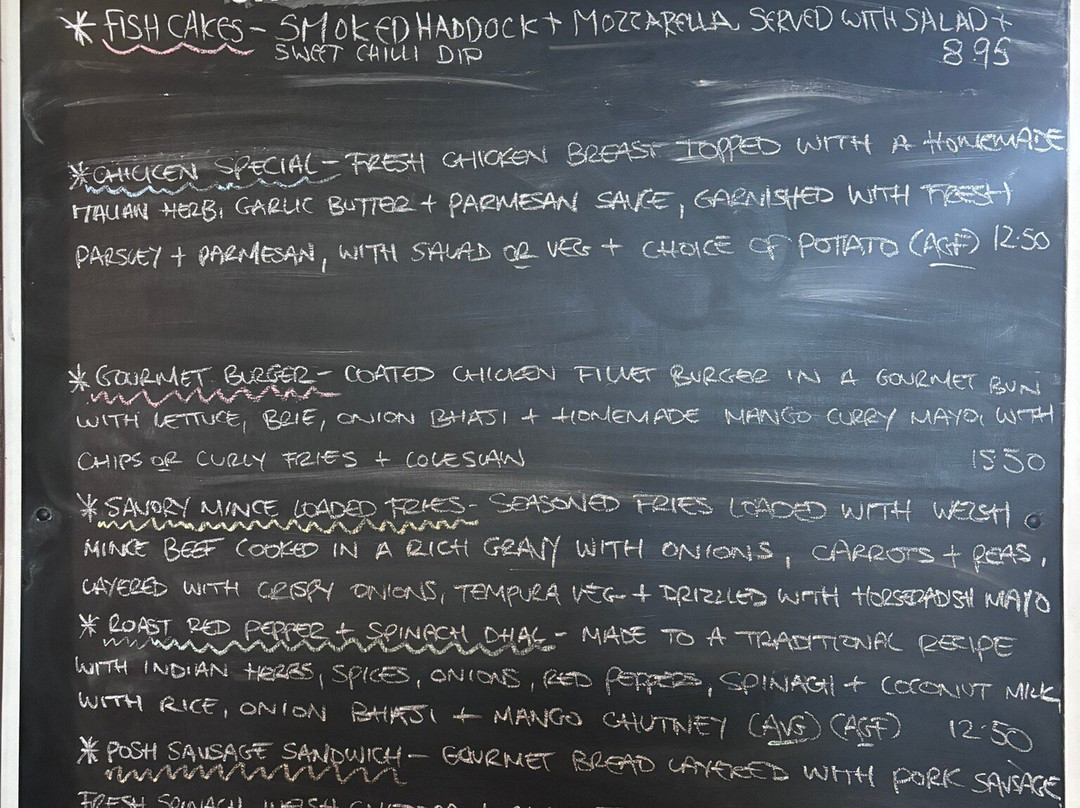 * FISH CAKES - SMOKED HADDOCK + MOZZARELLA SERVED WITH SALAD +
SWEET CHILLI DIP 8.95
* CHICKEN SPECIAL - FRESH CHICKEN BREAST TOPPED WITH A HOMEMADE
ITALIAN HERB, GARLIC BUTTER + PARMESAN SAUCE, GARNISHED WITH FRESH
PARSLEY + PARMESAN, WITH SALAD OR VEG + CHOICE OF POTATO (AGF) 12.50
* GOURMET BURGER - COATED CHICKEN FILLET BURGER IN A GOURMET BUN
WITH LETTUCE, BRIE, ONION BHAJI + HOMEMADE MANGO CURRY MAYO, WITH
CHIPS OR CURLY FRIES + COLESLAW 15.50
* SAVORY MINCE LOADED FRIES - SEASONED FRIES LOADED WITH WELSH
MINCE BEEF COOKED IN A RICH GRAVY WITH ONIONS, CARROTS + PEAS,
LAYERED WITH CRISPY ONIONS, TEMPURA VEG + DRIZZLED WITH HORSERADISH MAYO
* ROAST RED PEPPER + SPINACH DHAL - MADE TO A TRADITIONAL RECIPE
WITH INDIAN HERBS, SPICES, ONIONS, RED PEPPERS, SPINACH + COCONUT MILK,
WITH RICE, ONION BHAJI + MANGO CHUTNEY (AVG) (AGF) 12.50
* POSH SAUSAGE SANDWICH - GOURMET BREAD LAYERED WITH PORK SAUSAGE
FRESH SPINACH, WELSH CHEDDAR